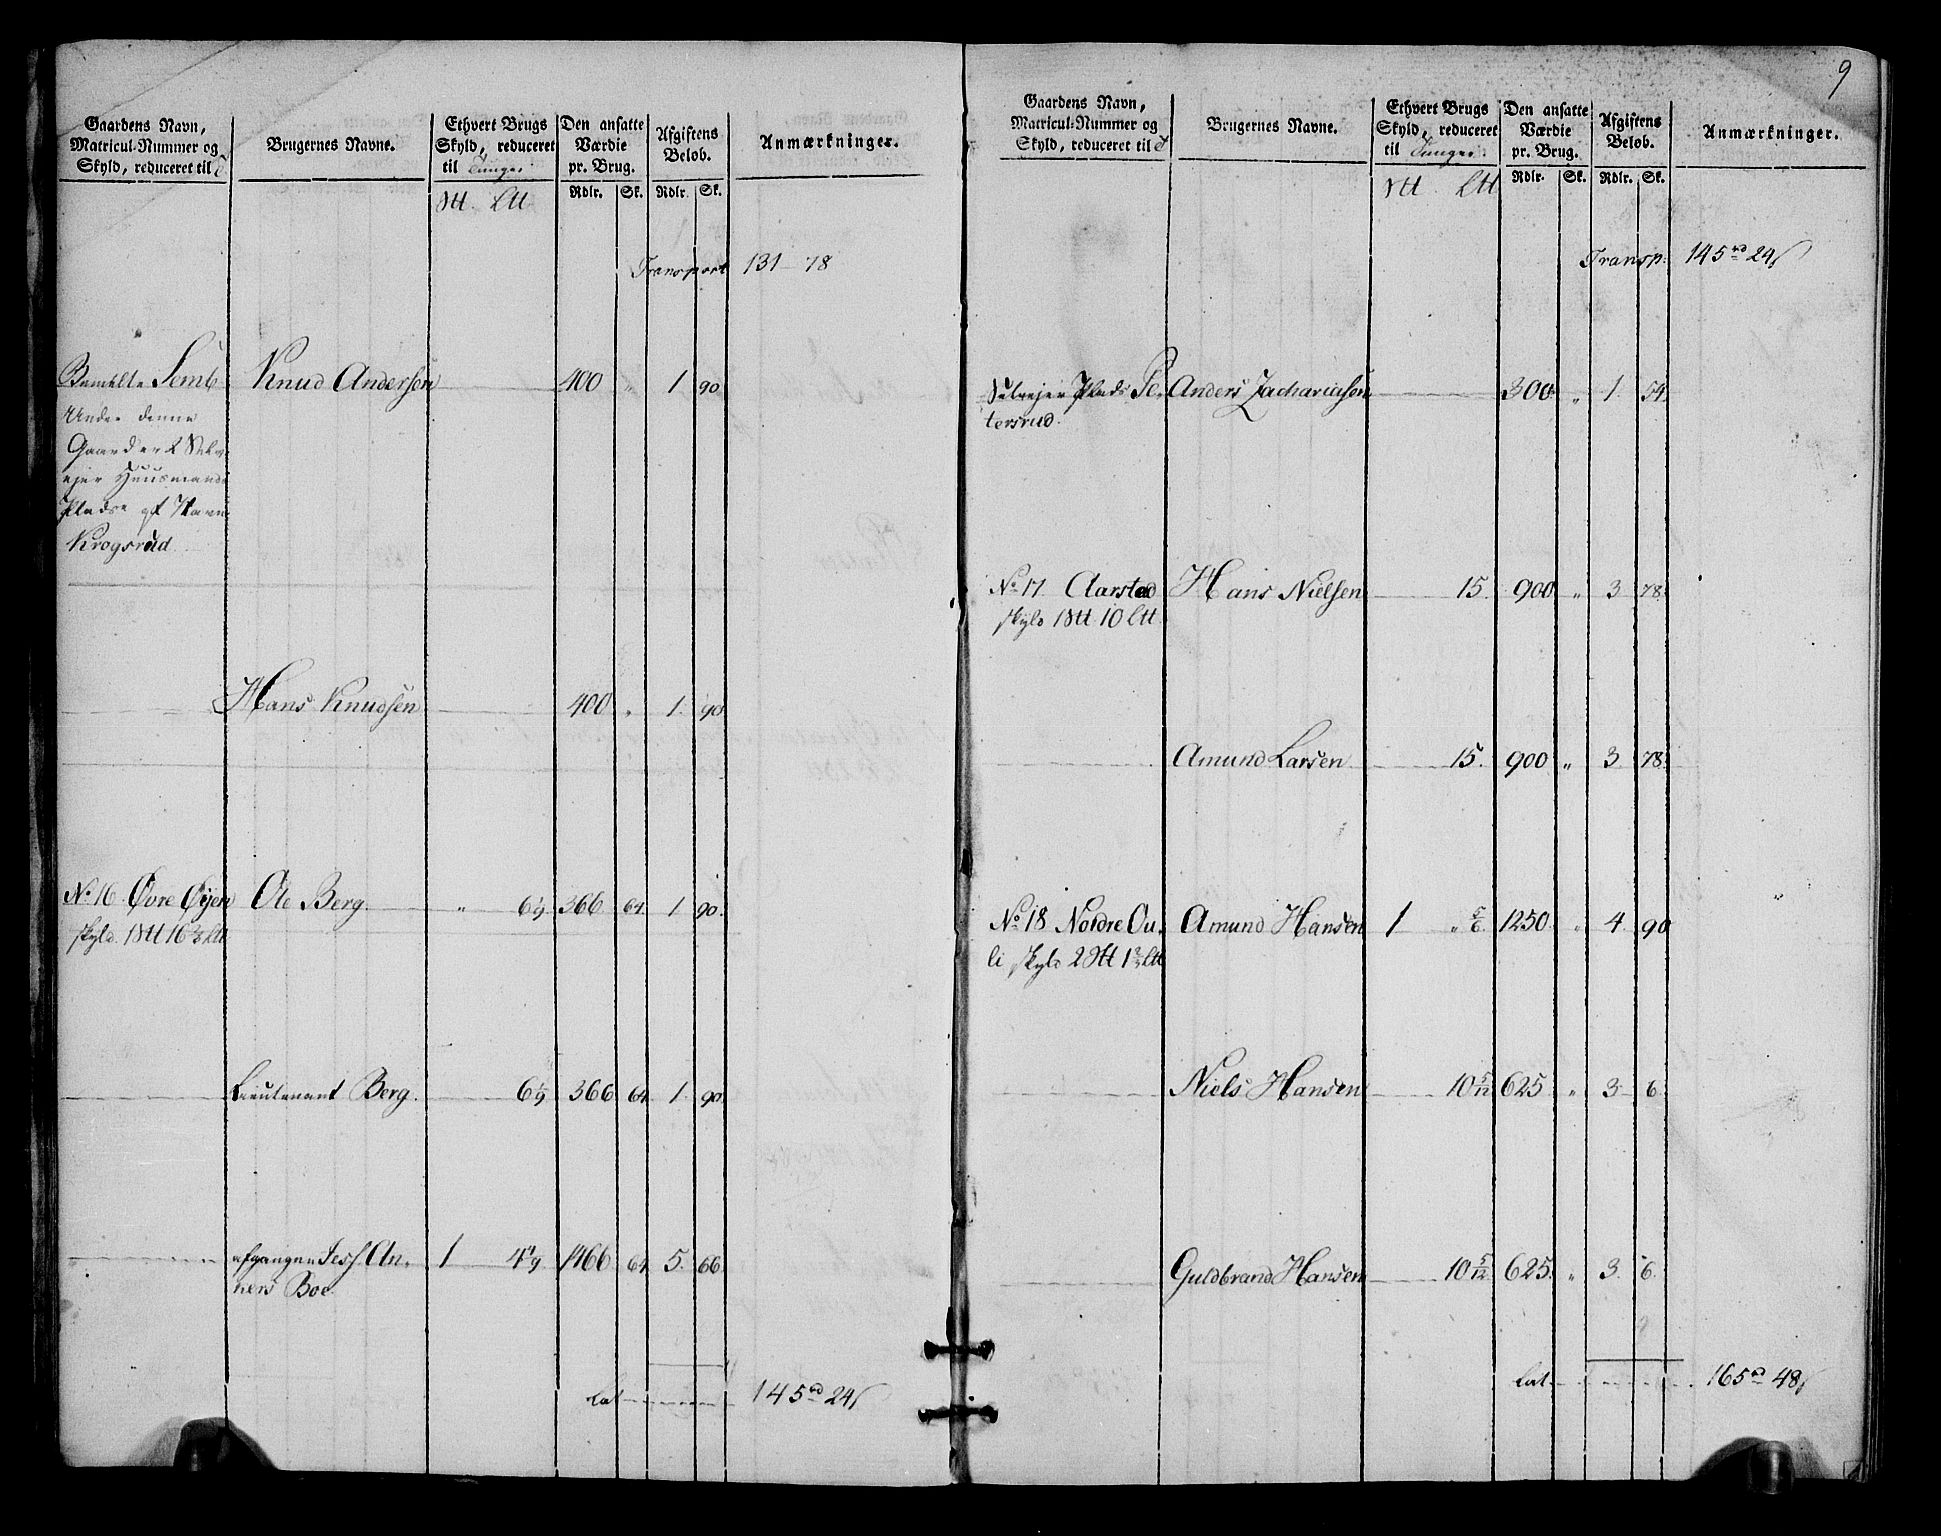 Gaardens Navn,
Matricul-Nummer og
Skyld, reduceret til T
Brugernes Navne.
Ethvert Brugs
Skyld, reduceret
til Tunge.
Den ansatte
Værdie
pr. Brug.
Rdlr. Sk.
Afgiftens
Beløb.
Rdlr. Sk.
Anmærkninger.
Transport 131 - 78
Bemelte Semb Knud Andersen 400 " 1 90
Under denne
Gaard er 2 Selv
ejer Huusmands
Pladse af Navn
Krogsrud
Hans Knudsen 400 " 1. 90
No 16 Øvre Øyen Ole Berg " 6 1/9 366 64 1 90.
skyld. 1 16 2/3
Lieutenant Berg. 6 1/9 366 64 1. 90.
afgangne Jess. An-
ners Boe. 1 4 4/9 1466 64 5. 66
Lat 145 rd 24 s
9
Gaardens Navn,
Matricul-Nummer og
Skyld, reduceret til T
Brugernes Navne.
Ethvert Brugs
Skyld, reduceret
til Tunge.
Den ansatte
Værdie
pr. Brug.
Rdlr. Sk.
Afgiftens
Beløb.
Rdlr. Sk.
Anmærkninger.
Transp: 145 rd 24 s
Selvejer Plads Pe- Anders Zachariasen 300 " 1. 54.
tersrud.
No 17 Aarstad Hans Nielsen 15. 900 " 3 78.
skyld 1 10
Amund Larsen 15. 900 " 3 78.
No 18 Nordre Ou- Amund Hansen 1 " 5/6 1250 " 4. 90
li skyld 2 1 2/3
Niels Hansen 10 5/12 625 " 3 6.
Guldbrand Hansen 10 5/12 625. " 3. 6.
Lat 165 rd 48 s